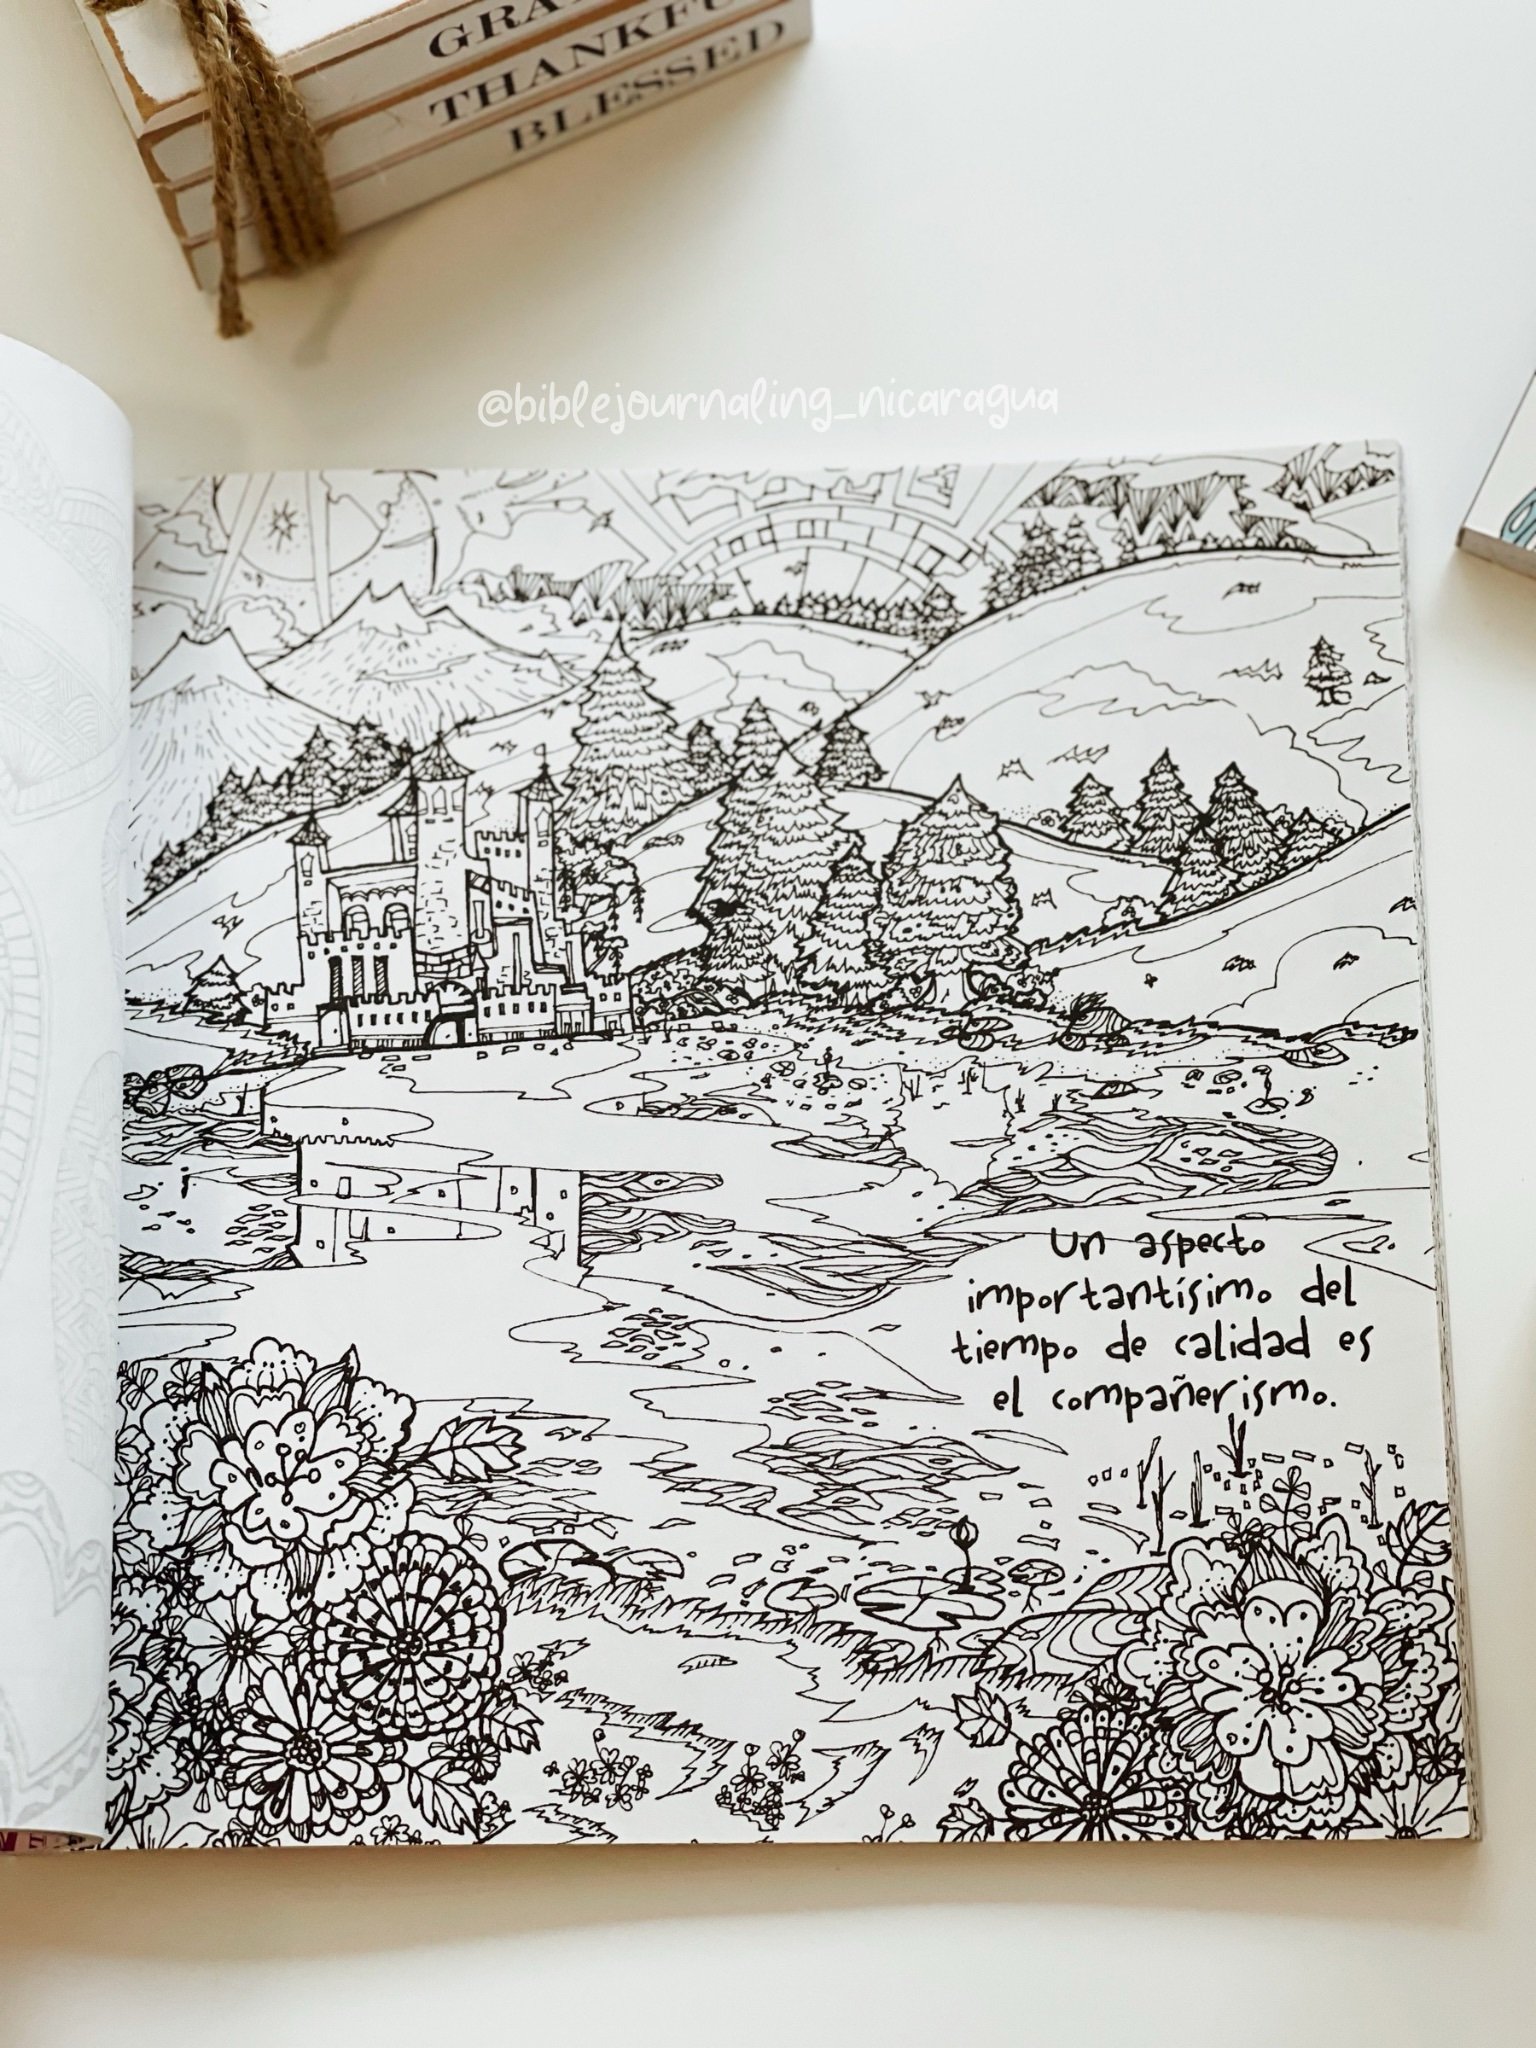 THANKFU
BLESSED
@biblejournaling_nicaragua
Un aspecto
importantísimo del
tiempo de calidad es
el compañerismo.